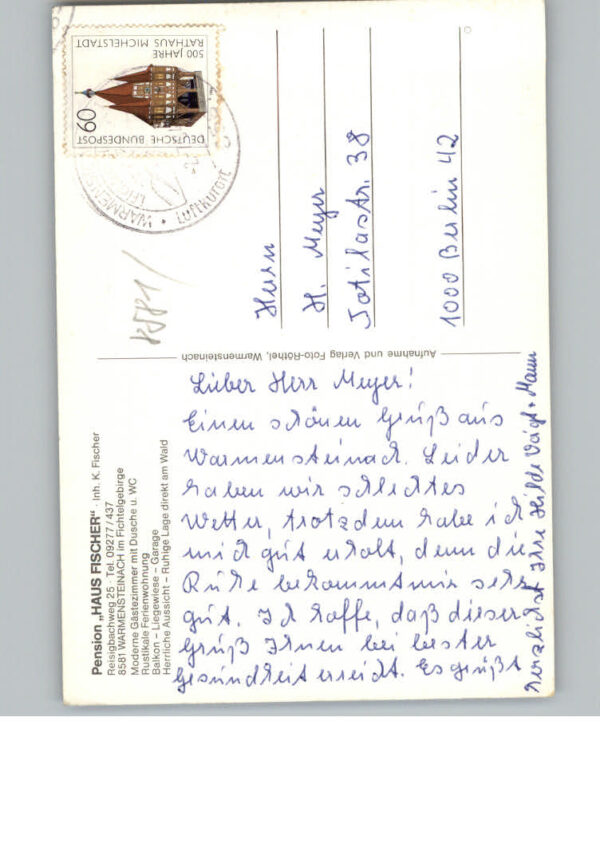 Pension „HAUS FISCHER“ · Inh. K. Fischer
Reisigbachweg 25 · Tel. 09277/437
8581 WARMENSTEINACH im Fichtelgebirge
Moderne Gästezimmer mit Dusche u. WC
Rustikale Ferienwohnung
Balkon – Liegewiese – Garage
Herrliche Aussicht - Ruhige Lage direkt am Wald
8581/
DEUTSCHE BUNDESPOST
60
500 JAHRE
RATHAUS MICHELSTADT
WARMENS
Luftkurort
Aufnahme und Verlag Foto-Röthel, Warmensteinach
Herrn
H. Meyer
Totilastr. 38
1000 Berlin 42
Lieber Herr Meyer!
Einen schönen Gruß aus
Warmensteinach. Leider
haben wir schlechtes
Wetter, trotzdem habe ich
mich gut erholt, denn die
Ruhe bekommt mir sehr
gut. Ich hoffe, daß dieser
Gruß Ihnen bei bester
Gesundheit erreicht. Es grüßt
herzlichst Ihre Hilde Voigt + Mann